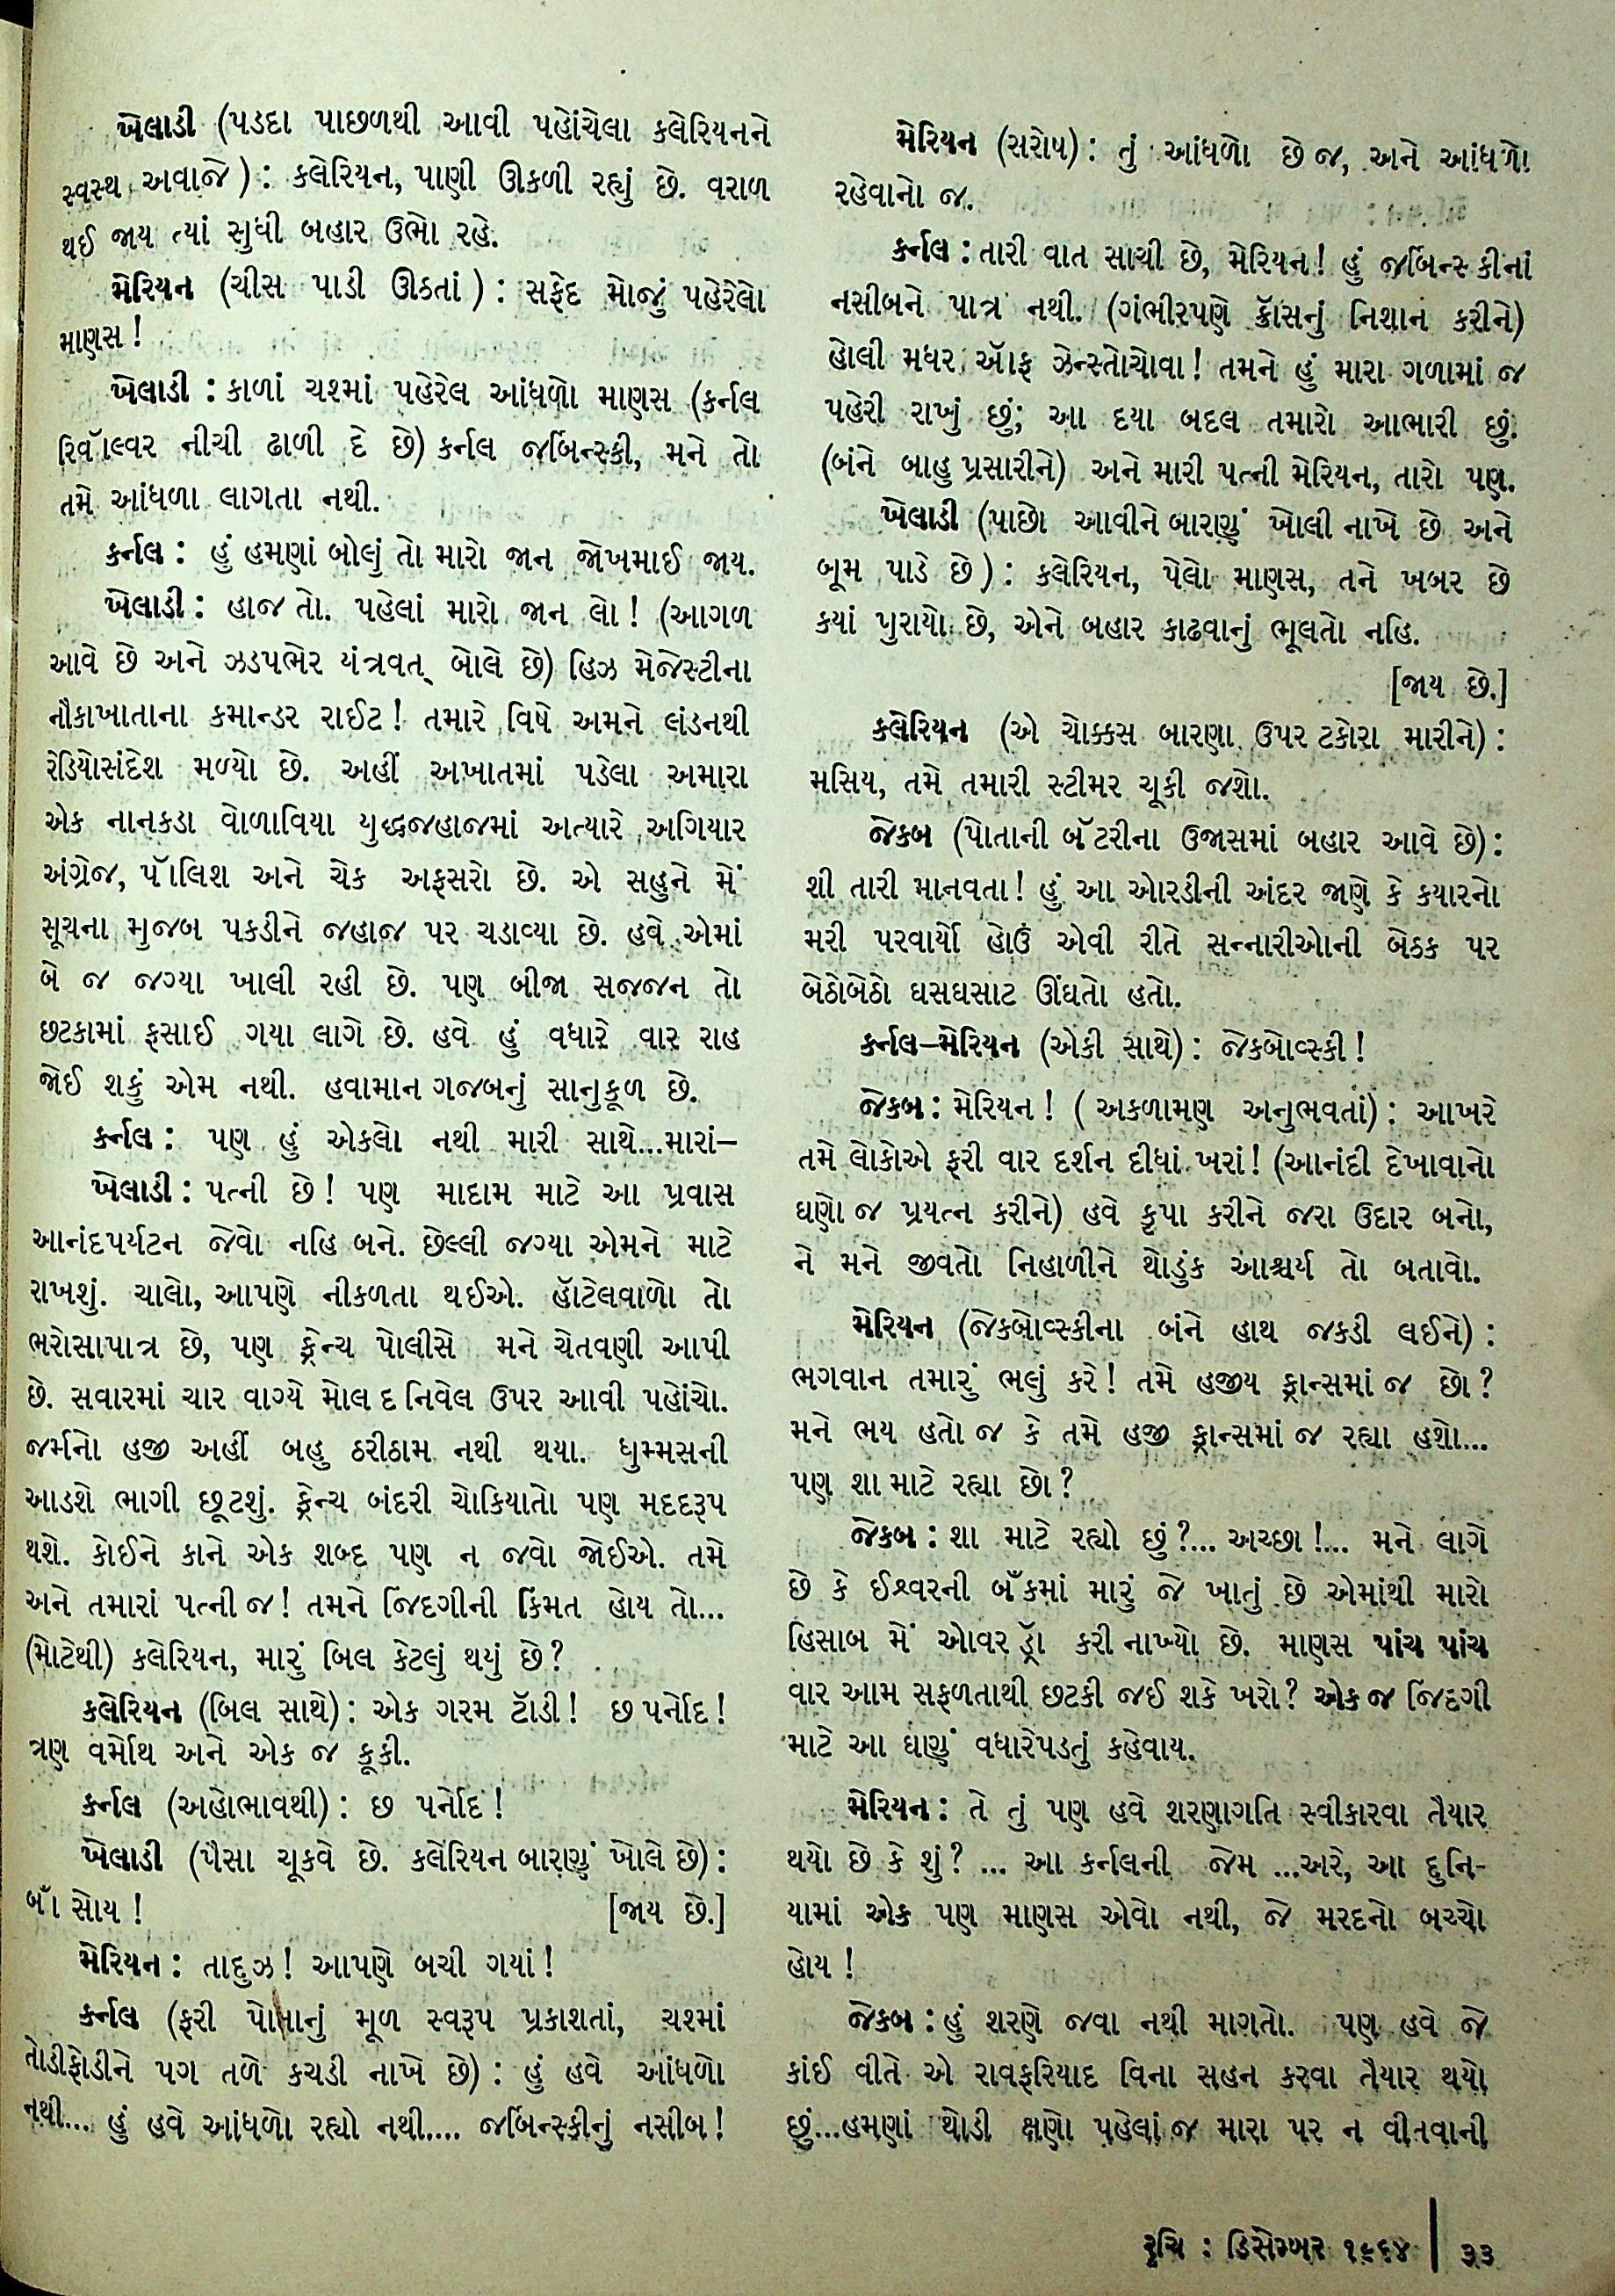 ખેલાડી (પડદા પાછળથી આવી પહોંચેલા કલેરિયનને
સ્વસ્થ અવાજે) : કલેરિયન, પાણી ઊકળી રહ્યું છે. વરાળ
થઈ જાય ત્યાં સુધી બહાર ઉભો રહે.
મેરિયન (ચીસ પાડી ઊઠતાં) : સફેદ મોજું પહેરેલો
માણસ !
ખેલાડી : કાળાં ચશ્માં પહેરેલ આંધળો માણસ (કર્નલ
રિવૉલ્વર નીચી ઢાળી દે છે) કર્નલ જર્બિન્સ્કી, મને તો
તમે આંધળા લાગતા નથી.
કર્નલ : હું હમણાં બોલું તો મારો જાન જોખમાઈ જાય.
ખેલાડી : હાજ તો. પહેલાં મારો જાન લો ! (આગળ
આવે છે અને ઝડપભેર યંત્રવત્ બોલે છે) હિઝ મેજેસ્ટીના
નૌકાખાતાના કમાન્ડર રાઈટ ! તમારે વિષે અમને લંડનથી
રેડિયોસંદેશ મળ્યો છે. અહીં અખાતમાં પડેલા અમારા
એક નાનકડા વોળાવિયા યુદ્ધજહાજમાં અત્યારે અગિયાર
અંગ્રેજ, પૉલિશ અને ચેક અફસરો છે. એ સહુને મેં
સૂચના મુજબ પકડીને જહાજ પર ચડાવ્યા છે. હવે એમાં
બે જ જગ્યા ખાલી રહી છે. પણ બીજા સજ્જન તો
છટકામાં ફસાઈ ગયા લાગે છે. હવે હું વધારે વાર રાહ
જોઈ શકું એમ નથી. હવામાન ગજબનું સાનુકૂળ છે.
કર્નલ : પણ હું એકલો નથી મારી સાથે...મારાં–
ખેલાડી : પત્ની છે ! પણ માદામ માટે આ પ્રવાસ
આનંદપર્યટન જેવો નહિ બને. છેલ્લી જગ્યા એમને માટે
રાખશું. ચાલો, આપણે નીકળતા થઈએ. હૉટેલવાળો તો
ભરોસાપાત્ર છે, પણ ફ્રેન્ચ પોલીસે મને ચેતવણી આપી
છે. સવારમાં ચાર વાગ્યે મોલ દ નિવેલ ઉપર આવી પહોંચો.
જર્મનો હજી અહીં બહુ ઠરીઠામ નથી થયા. ધુમ્મસની
આડશે ભાગી છૂટશું. ફ્રેન્ચ બંદરી ચોકિયાતો પણ મદદરૂપ
થશે. કોઈને કાને એક શબ્દ પણ ન જવો જોઈએ. તમે
અને તમારાં પત્ની જ ! તમને જિંદગીની કિંમત હોય તો...
(મોટેથી) કલેરિયન, મારું બિલ કેટલું થયું છે ?
કલેરિયન (બિલ સાથે) : એક ગરમ ટૉડી ! છ પર્નોદ !
ત્રણ વર્મોથ અને એક જ કૂકી.
કર્નલ (અહોભાવથી) : છ પર્નોદ !
ખેલાડી (પૈસા ચૂકવે છે. કલેરિયન બારણું ખોલે છે) :
બૉં સોય ! [જાય છે.]
મેરિયન : તાદુઝ ! આપણે બચી ગયાં !
કર્નલ (ફરી પોતાનું મૂળ સ્વરૂપ પ્રકાશતાં, ચશ્માં
તોડીફોડીને પગ તળે કચડી નાખે છે) : હું હવે આંધળો
નથી... હું હવે આંધળો રહ્યો નથી.... જર્બિન્સ્કીનું નસીબ !
મેરિયન (સરોષ) : તું આંધળો છે જ, અને આંધળો
રહેવાનો જ.
કર્નલ : તારી વાત સાચી છે, મેરિયન ! હું જર્બિન્સ્કીનાં
નસીબને પાત્ર નથી. (ગંભીરપણે ક્રૉસનું નિશાન કરીને)
હોલી મધર ઑફ ઝેન્સ્તોચોવા ! તમને હું મારા ગળામાં જ
પહેરી રાખું છું; આ દયા બદલ તમારો આભારી છું.
(બંને બાહુ પ્રસારીને) અને મારી પત્ની મેરિયન, તારો પણ.
ખેલાડી (પાછો આવીને બારણું ખોલી નાખે છે અને
બૂમ પાડે છે) : કલેરિયન, પેલો માણસ, તને ખબર છે
કયાં પુરાયો છે, એને બહાર કાઢવાનું ભૂલતો નહિ.
[જાય છે.]
કલેરિયન (એ ચોક્કસ બારણા ઉપર ટકોરા મારીને) :
મસિય, તમે તમારી સ્ટીમર ચૂકી જશો.
જેકબ (પોતાની બૅટરીના ઉજાસમાં બહાર આવે છે) :
શી તારી માનવતા ! હું આ ઓરડીની અંદર જાણે કે કયારનો
મરી પરવાર્યો હોઉં એવી રીતે સન્નારીઓની બેઠક પર
બેઠોબેઠો ઘસઘસાટ ઊંઘતો હતો.
કર્નલ–મેરિયન (એકી સાથે) : જેકબોવ્સ્કી !
જેકબ : મેરિયન ! ( અકળામણ અનુભવતાં) : આખરે
તમે લોકોએ ફરી વાર દર્શન દીધાં ખરાં ! (આનંદી દેખાવાનો
ઘણો જ પ્રયત્ન કરીને) હવે કૃપા કરીને જરા ઉદાર બનો,
ને મને જીવતો નિહાળીને થોડુંક આશ્ચર્ય તો બતાવો.
મેરિયન (જેકબોવ્સ્કીના બંને હાથ જકડી લઈને) :
ભગવાન તમારું ભલું કરે ! તમે હજીય ફ્રાન્સમાં જ છો ?
મને ભય હતો જ કે તમે હજી ફ્રાન્સમાં જ રહ્યા હશો...
પણ શા માટે રહ્યા છો ?
જેકબ : શા માટે રહ્યો છું ?... અચ્છા !... મને લાગે
છે કે ઈશ્વરની બૅંકમાં મારું જે ખાતું છે એમાંથી મારો
હિસાબ મેં ઓવર ડ્રૉ કરી નાખ્યો છે. માણસ પાંચ પાંચ
વાર આમ સફળતાથી છટકી જઈ શકે ખરો ? એક જ જિંદગી
માટે આ ઘણું વધારેપડતું કહેવાય.
મેરિયન : તે તું પણ હવે શરણાગતિ સ્વીકારવા તૈયાર
થયો છે કે શું ? ... આ કર્નલની જેમ ...અરે, આ દુનિ-
યામાં એક પણ માણસ એવો નથી, જે મરદનો બચ્ચો
હોય !
જેકબ : હું શરણે જવા નથી માગતો. પણ હવે જે
કાંઈ વીતે એ રાવફરિયાદ વિના સહન કરવા તૈયાર થયો
છું...હમણાં થોડી ક્ષણો પહેલાં જ મારા પર ન વીતવાની
રુચિ : ડિસેમ્બર ૧૯૬૪ | ૩૩